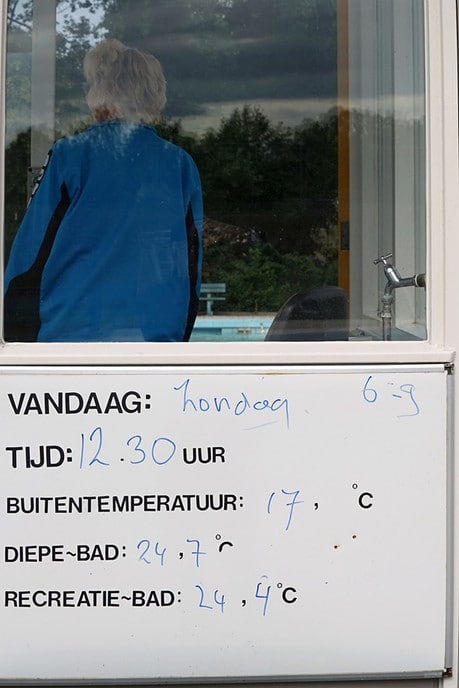 VANDAAG: Zondag 6-9
TIJD: 12.30 UUR
BUITENTEMPERATUUR: 17, °C
DIEPE~BAD: 24,7 °C
RECREATIE~BAD: 24,4 °C